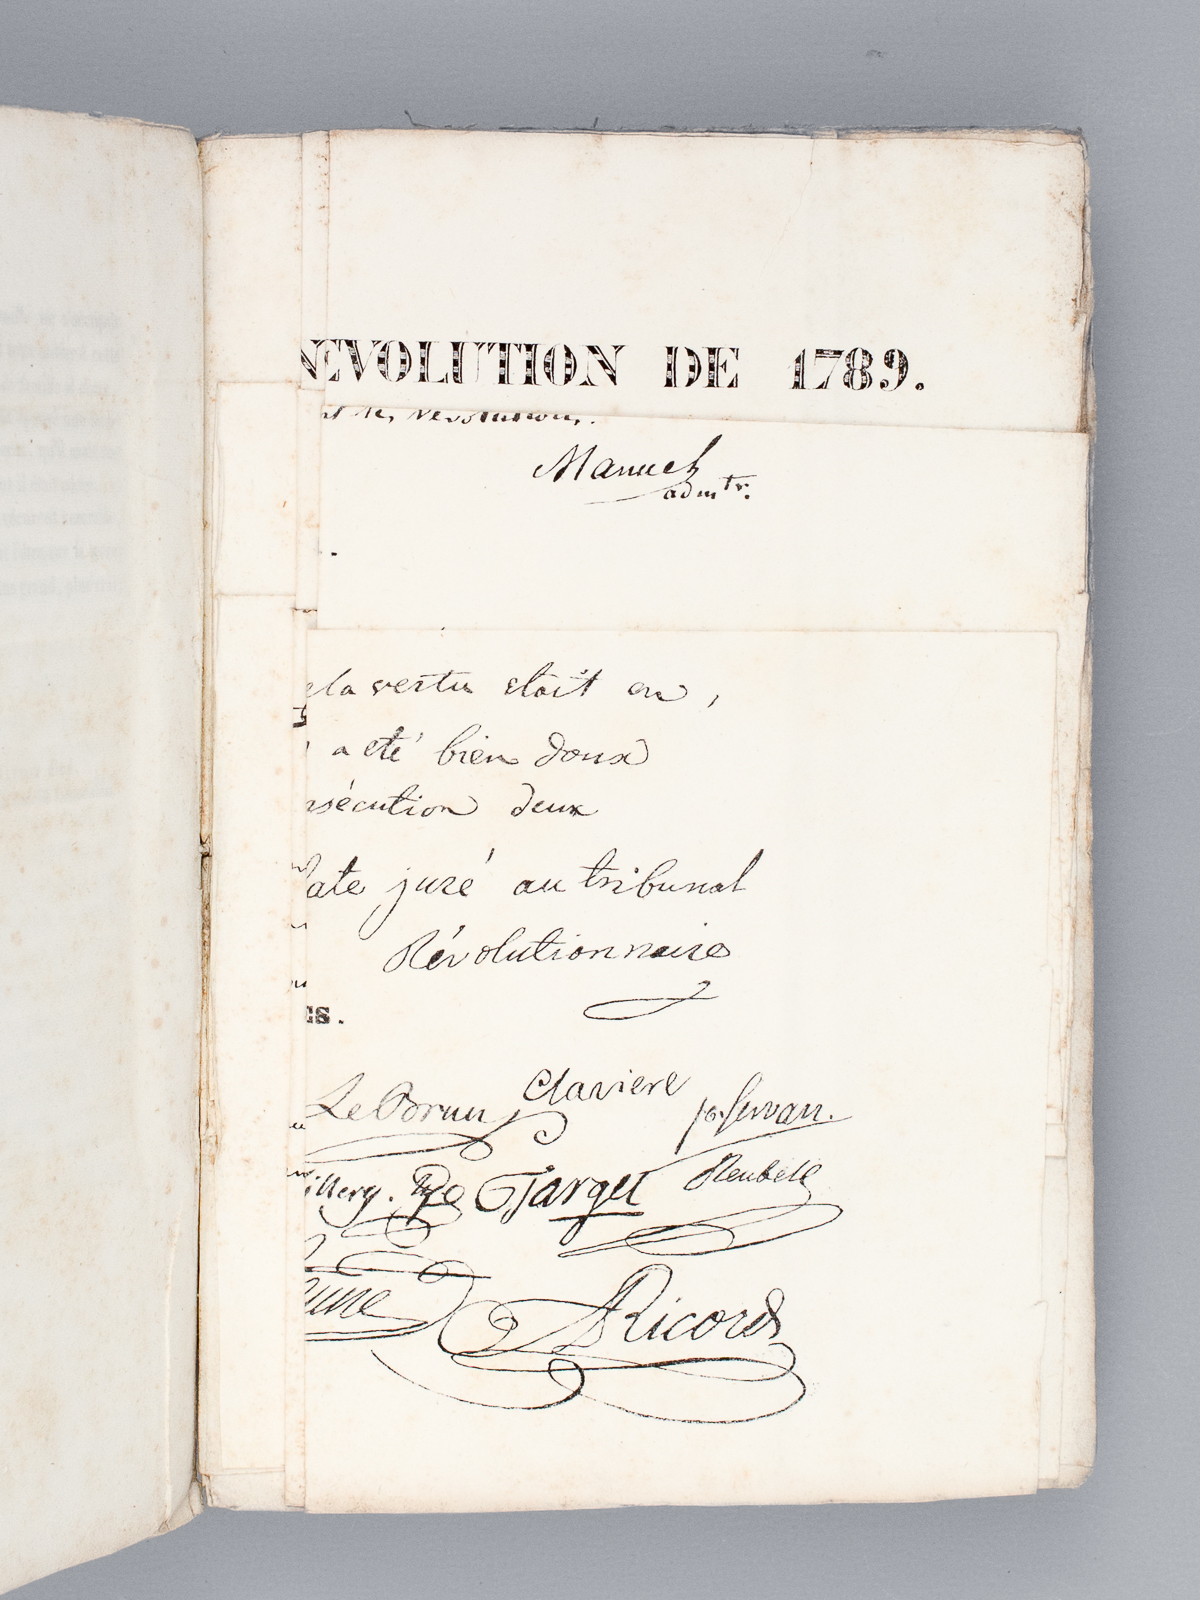 EVOLUTION DE 1789.
Manuel
admtr.
la vertu etoit en,
a eté bien doux
sécution deux
ate juré au tribunal
Révolutionnaire
ES.
LeBrun Claviere jh. Servan.
illery. Target Reubell
une Ricord